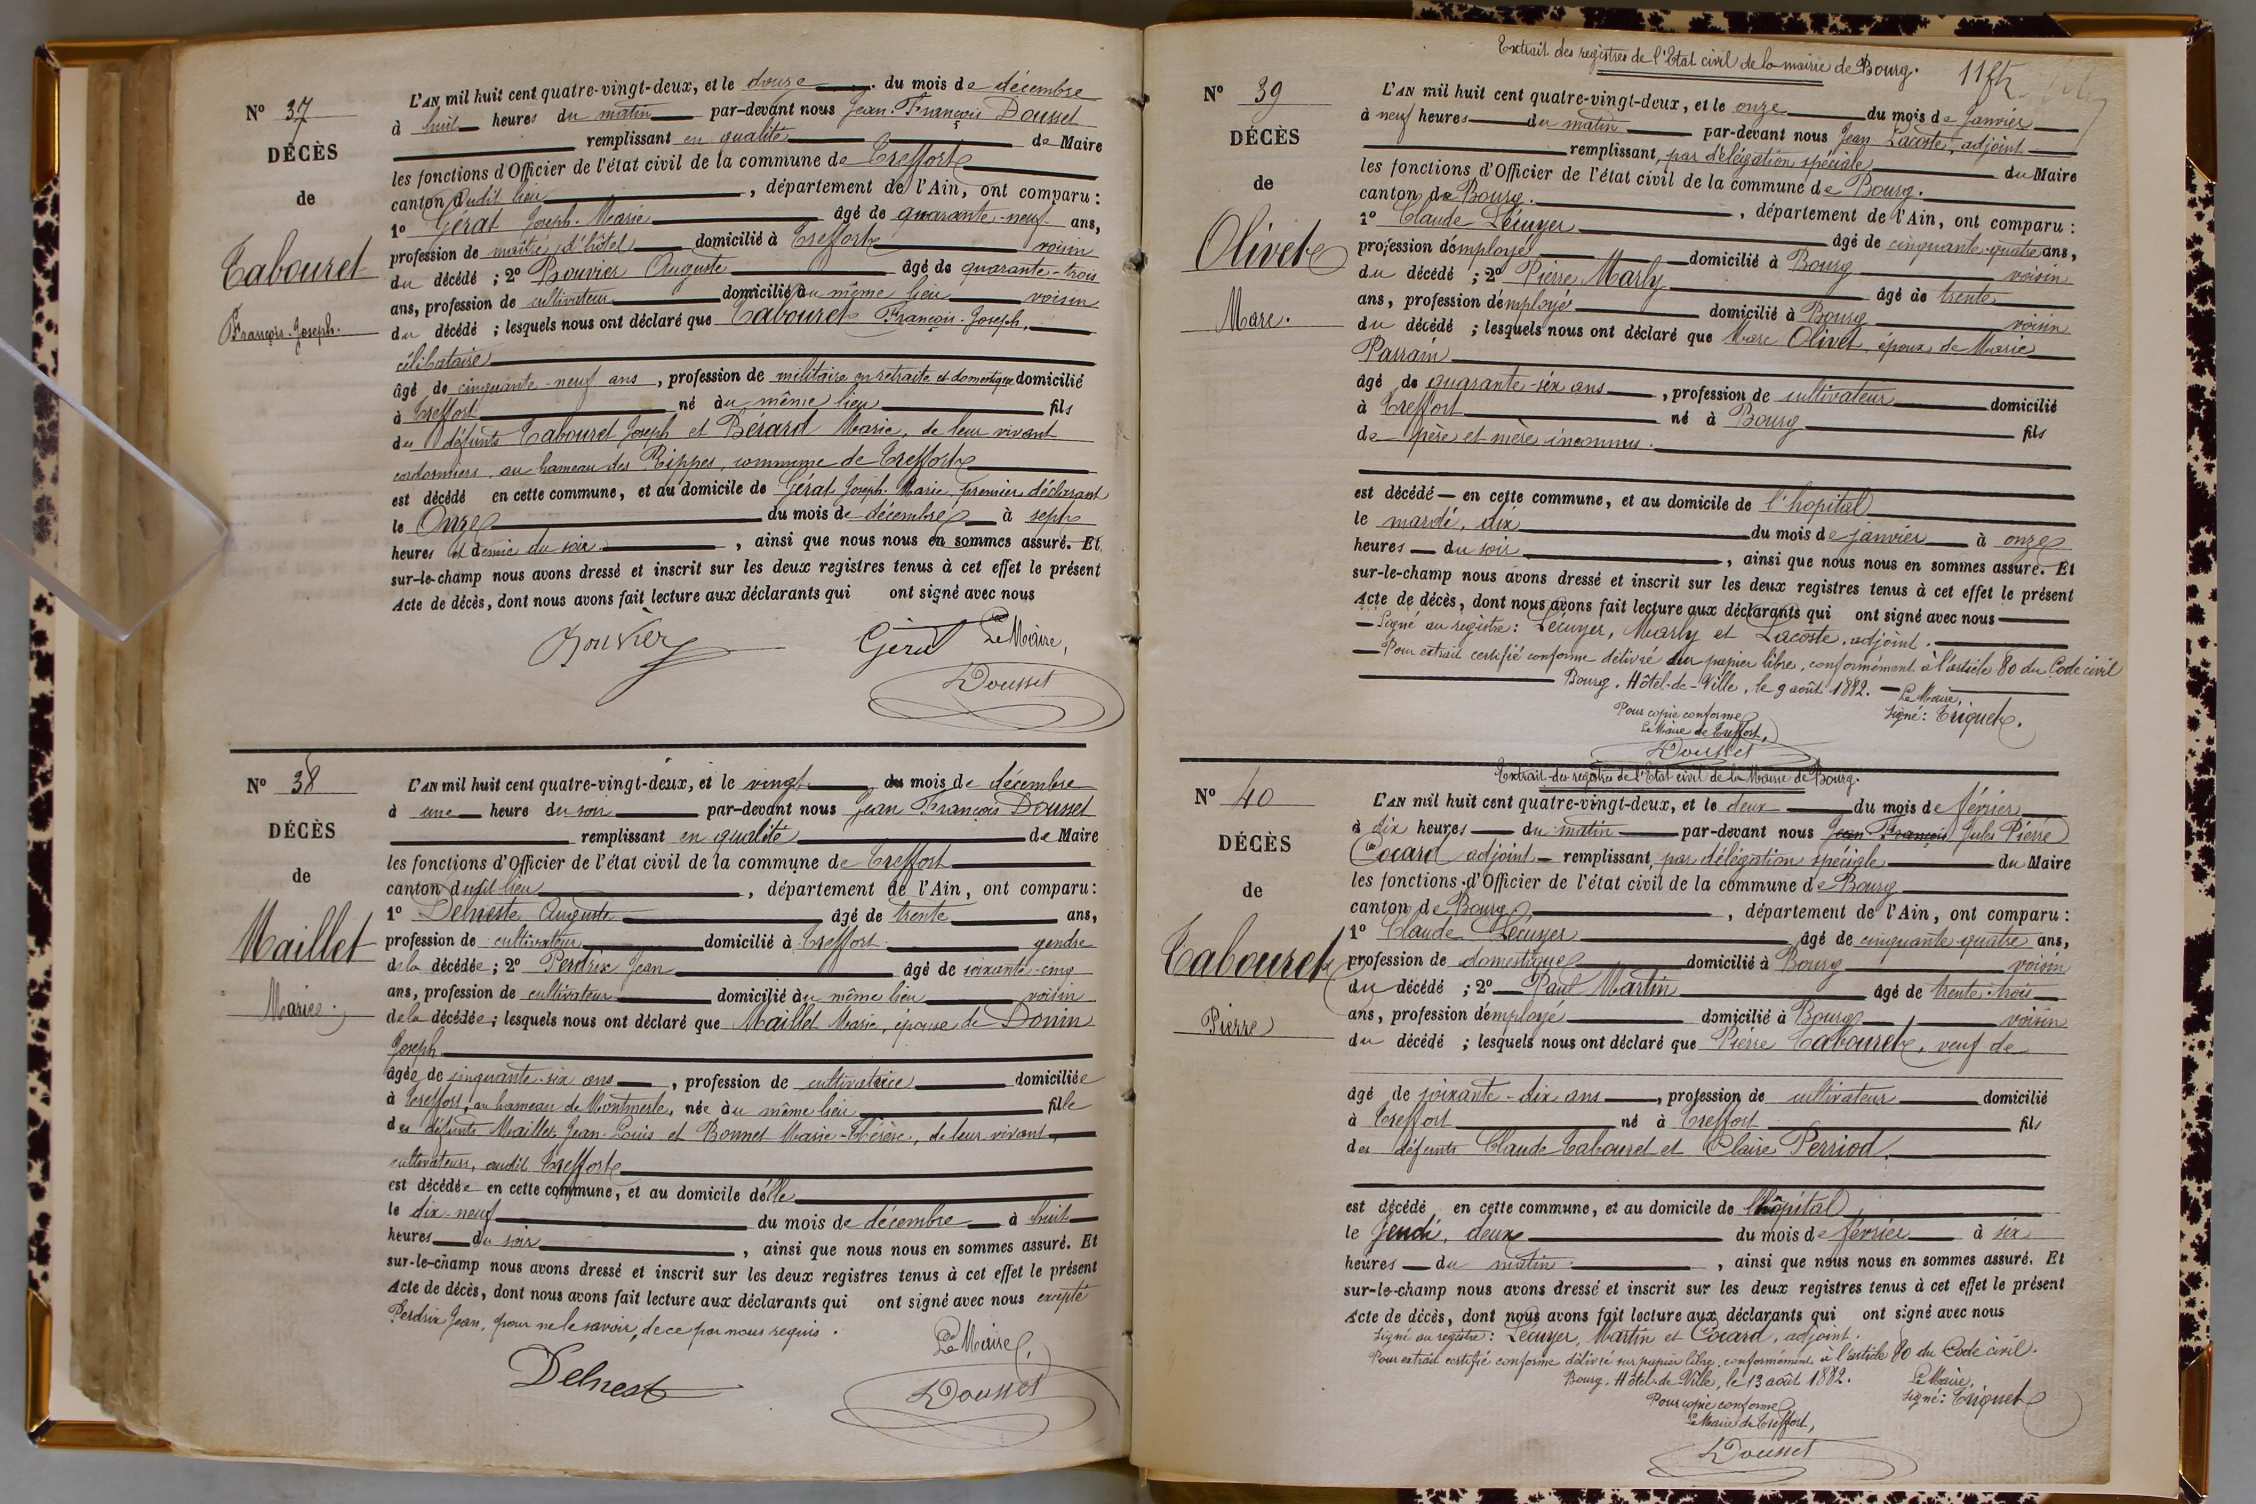 N° 37
DÉCÈS
de
Tabouret
François-Joseph.
L'AN mil huit cent quatre-vingt-deux, et le douze du mois de décembre
à huit heures du matin par-devant nous Jean-François Dousset
remplissant en qualité de Maire
les fonctions d'Officier de l'état civil de la commune de Treffort
canton dudit lieu, département de l'Ain, ont comparu :
1° Gérat Joseph-Marie âgé de quarante-neuf ans,
profession de maître d'hôtel domicilié à Treffort voisin
du décédé ; 2° Bouvier Auguste âgé de quarante-trois
ans, profession de cultivateur domicilié au même lieu voisin
du décédé ; lesquels nous ont déclaré que Tabouret François-Joseph,
célibataire
âgé de cinquante-neuf ans, profession de militaire en retraite et domestique domicilié
à Treffort né au même lieu fils
des défunts Tabouret Joseph et Bérard Marie, de leur vivant
cordonniers, au hameau des Rippes, commune de Treffort
est décédé en cette commune, et au domicile de Gérat Joseph-Marie, premier déclarant
le Onze du mois de décembre à sept
heures et demie du soir, ainsi que nous nous en sommes assuré. Et
sur-le-champ nous avons dressé et inscrit sur les deux registres tenus à cet effet le présent
Acte de décès, dont nous avons fait lecture aux déclarants qui ont signé avec nous
Bouvier Gérat Le Maire,
Dousset
N° 38
DÉCÈS
de
Maillet
Marie.
L'AN mil huit cent quatre-vingt-deux, et le vingt du mois de décembre
à une heure du soir par-devant nous Jean François Dousset
remplissant en qualité de Maire
les fonctions d'Officier de l'état civil de la commune de Treffort
canton dudit lieu, département de l'Ain, ont comparu :
1° Delneste Auguste âgé de trente ans,
profession de cultivateur domicilié à Treffort gendre
de la décédée ; 2° Perdrix Jean âgé de soixante-cinq
ans, profession de cultivateur domicilié au même lieu voisin
de la décédée ; lesquels nous ont déclaré que Maillet Marie, épouse de Donin
Joseph
âgée de cinquante-six ans, profession de cultivatrice domiciliée
à Treffort, au hameau de Montmerle, née au même lieu fille
des défunts Maillet Jean-Louis et Bonnet Marie-Thérèse, de leur vivant,
cultivateurs, audit Treffort
est décédée en cette commune, et au domicile d'elle
le dix-neuf du mois de décembre à huit
heures du soir, ainsi que nous nous en sommes assuré. Et
sur-le-champ nous avons dressé et inscrit sur les deux registres tenus à cet effet le présent
Acte de décès, dont nous avons fait lecture aux déclarants qui ont signé avec nous excepté
Perdrix Jean, pour ne le savoir, de ce par nous requis.
Le Maire,
Delnest Dousset
Extrait des registres de l'Etat civil de la mairie de Bourg.
N° 39
DÉCÈS
de
Olivet
Marc.
L'AN mil huit cent quatre-vingt-deux, et le onze du mois de Janvier
à neuf heures du matin par-devant nous Jean Lacoste, adjoint
remplissant, par délégation spéciale du Maire
les fonctions d'Officier de l'état civil de la commune de Bourg.
canton de Bourg., département de l'Ain, ont comparu :
1° Claude Lécuyer âgé de cinquante-quatre ans,
profession d'employé domicilié à Bourg voisin
du décédé ; 2° Pierre Marly âgé de trente
ans, profession d'employé domicilié à Bourg voisin
du décédé ; lesquels nous ont déclaré que Marc Olivet, époux de Marie
Parrain
âgé de quarante-six ans, profession de cultivateur domicilié
à Treffort né à Bourg fils
de père et mère inconnus.
est décédé en cette commune, et au domicile de l'hopital
le mardi, dix du mois de janvier à onze
heures du soir, ainsi que nous nous en sommes assuré. Et
sur-le-champ nous avons dressé et inscrit sur les deux registres tenus à cet effet le présent
Acte de décès, dont nous avons fait lecture aux déclarants qui ont signé avec nous
Signé au registre : Lécuyer, Marly et Lacoste, adjoint.
Pour extrait certifié conforme délivré sur papier libre, conformément à l'article 80 du Code civil
Bourg, Hôtel-de-Ville, le 9 août 1882. Le Maire,
Signé : Triquet.
Pour copie conforme
Le Maire de Treffort,
Dousset
Extrait des registres de l'Etat civil de la Mairie de Bourg.
N° 40
DÉCÈS
de
Tabouret
Pierre
L'AN mil huit cent quatre-vingt-deux, et le deux du mois de février
à dix heures du matin par-devant nous Jean François Jules Pierre
Cocard adjoint remplissant, par délégation spéciale du Maire
les fonctions d'Officier de l'état civil de la commune de Bourg
canton de Bourg, département de l'Ain, ont comparu :
1° Claude Lécuyer âgé de cinquante-quatre ans,
profession de domestique domicilié à Bourg voisin
du décédé ; 2° Paul Martin âgé de trente-trois
ans, profession d'employé domicilié à Bourg voisin
du décédé ; lesquels nous ont déclaré que Pierre Tabouret, veuf de
âgé de soixante-dix ans, profession de cultivateur domicilié
à Treffort né à Treffort fils
des défunts Claude Tabouret et Claire Perriod.
est décédé en cette commune, et au domicile de l'hôpital
le Jeudi, deux du mois de février à six
heures du matin, ainsi que nous nous en sommes assuré. Et
sur-le-champ nous avons dressé et inscrit sur les deux registres tenus à cet effet le présent
Acte de décès, dont nous avons fait lecture aux déclarants qui ont signé avec nous
Signé au registre : Lécuyer, Martin et Cocard, adjoint.
Pour extrait certifié conforme délivré sur papier libre, conformément à l'article 80 du Code civil.
Bourg, Hôtel-de-Ville, le 13 août 1882. Le Maire,
Signé : Triquet
Pour copie conforme
Le Maire de Treffort,
Dousset